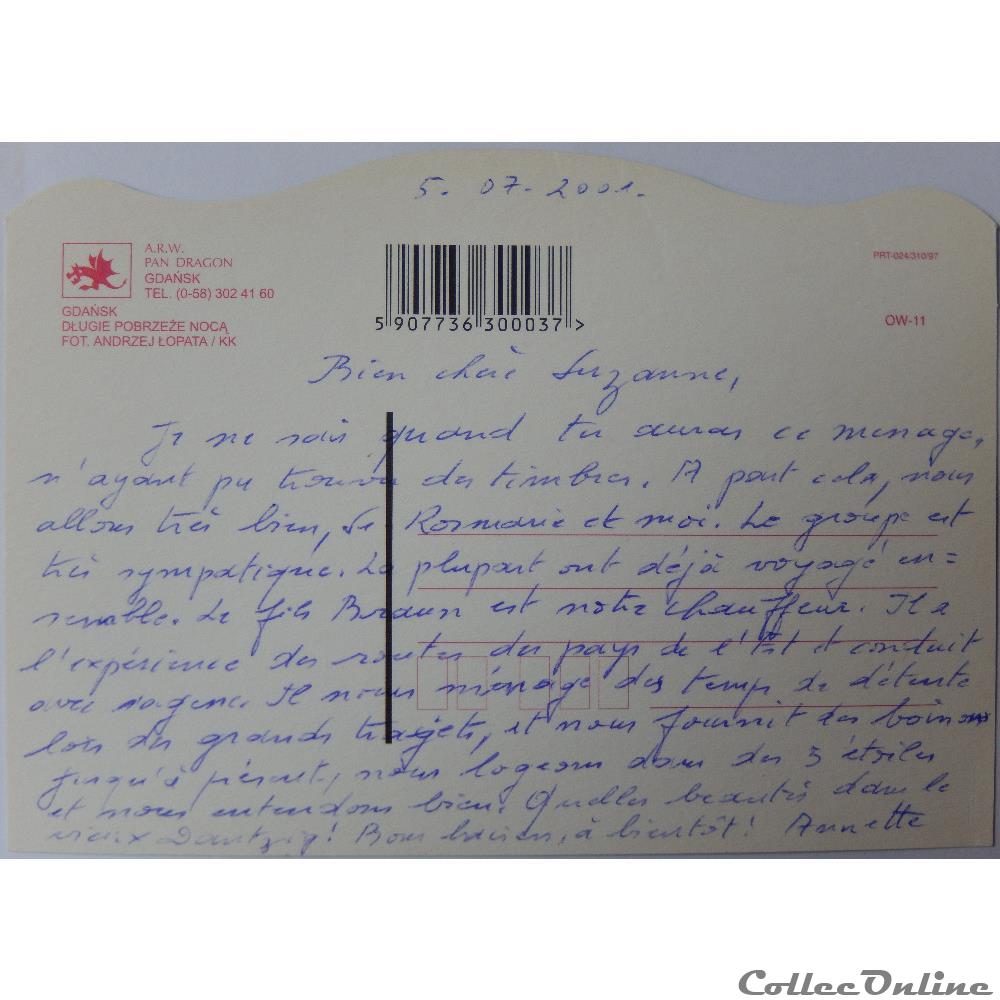 5. 07. 2001.
A.R.W.
PAN DRAGON
GDAŃSK
TEL. (0-58) 302 41 60
GDAŃSK
DŁUGIE POBRZEŻE NOCĄ
FOT. ANDRZEJ ŁOPATA / KK
5 907736 300037 >
PRT-024/310/97
OW-11
Bien chère Suzanne,
Je ne sais quand tu auras ce message,
n'ayant pu trouver des timbres. A part cela, nous
allons très bien, Rosmarie et moi. Le groupe est
très sympatique. La plupart ont déjà voyagé en=
semble. Le fils Braun est notre chauffeur. Il a
l'expérience des routes des pays de l'Est et conduit
avec sagesse. Il nous ménage des temps de détente
lors des grands trajets, et nous fournit des boissons
Jusqu'à présent, nous logeons dans des 3 étoiles
et nous entendons bien. Quelles beautés dans le
vieux Dantzig! Bons baisers, à bientôt! Annette
CollecOnline